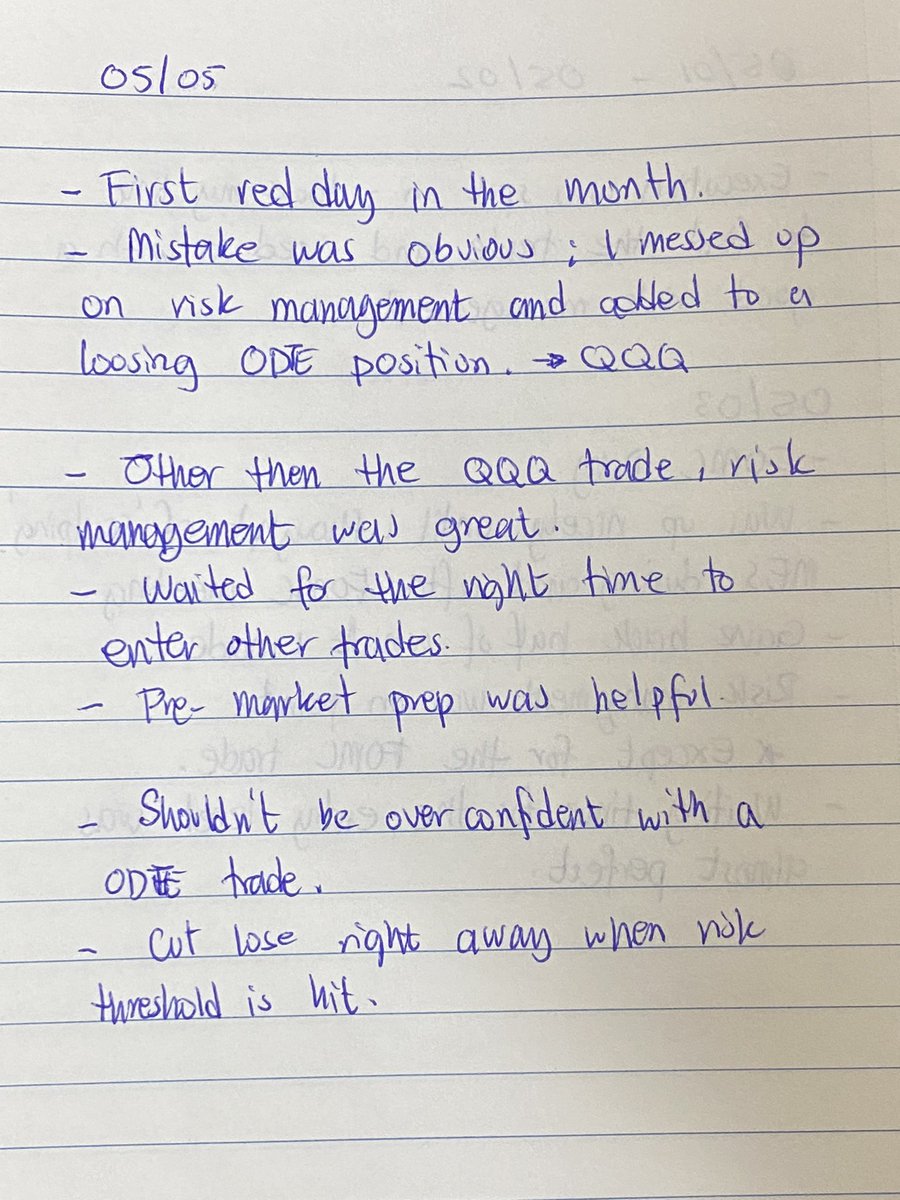 05/05
- First red day in the month.
- Mistake was obvious; I messed up
on risk management and added to a
loosing ODTE position. → QQQ
- Other then the QQQ trade, risk
management was great.
- Waited for the right time to
enter other trades.
- Pre-market prep was helpful.
- Shouldn't be over confident with a
ODTE trade.
- Cut lose right away when risk
threshold is hit.